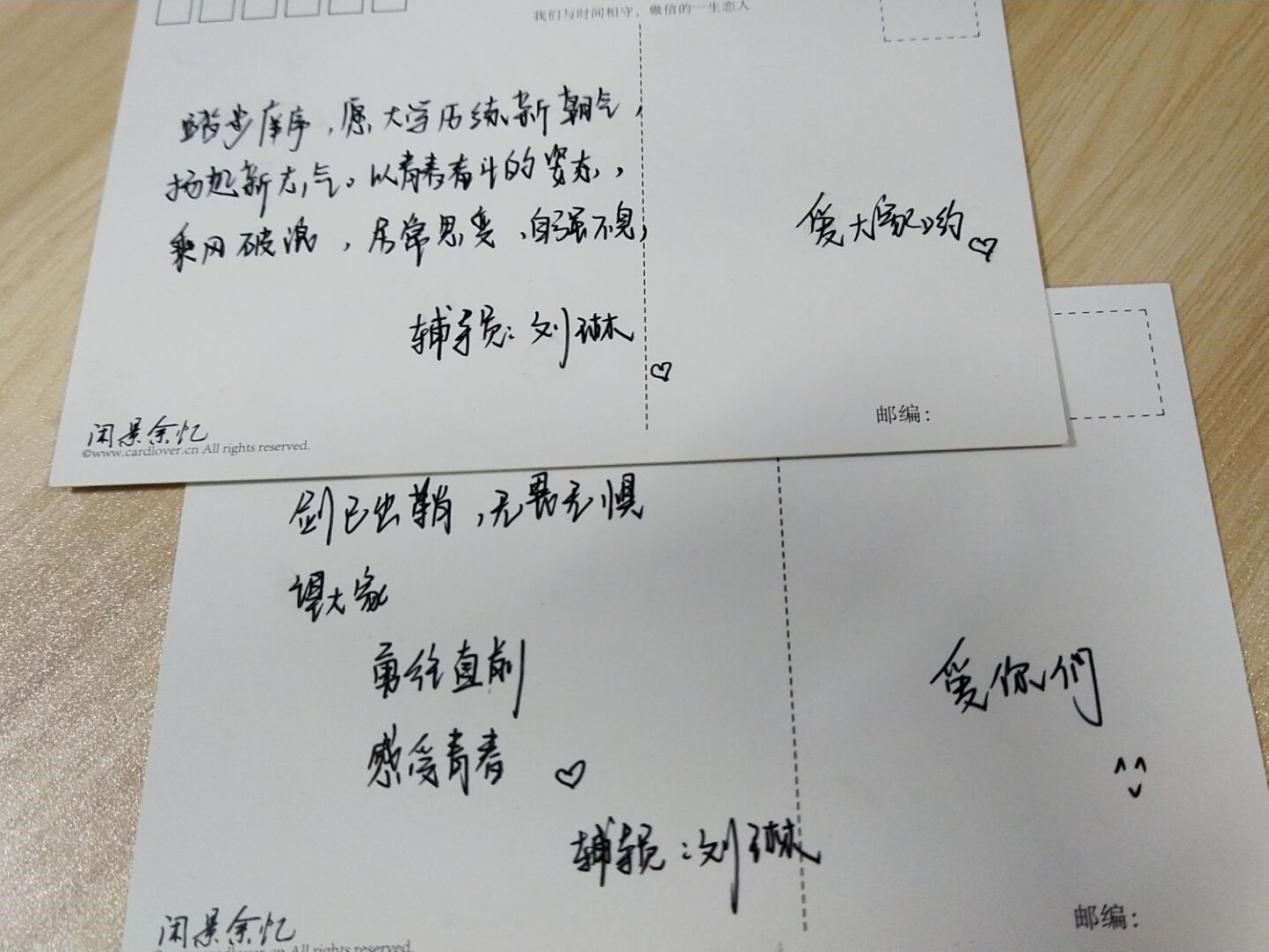 我们与时间相守，做信的一生恋人
踏步庠序，愿大学历练新朝气，
扬起新志气。以青春奋斗的姿态，
乘风破浪，居常思变，自强不息，
辅导员：刘琳
爱大家哟
邮编：
闲景余忆
©www.cardlover.cn All rights reserved.
剑已出鞘，无畏无惧
望大家
勇往直前
感受青春
辅导员：刘琳
爱你们
邮编：
闲景余忆
©www.cardlover.cn All rights reserved.